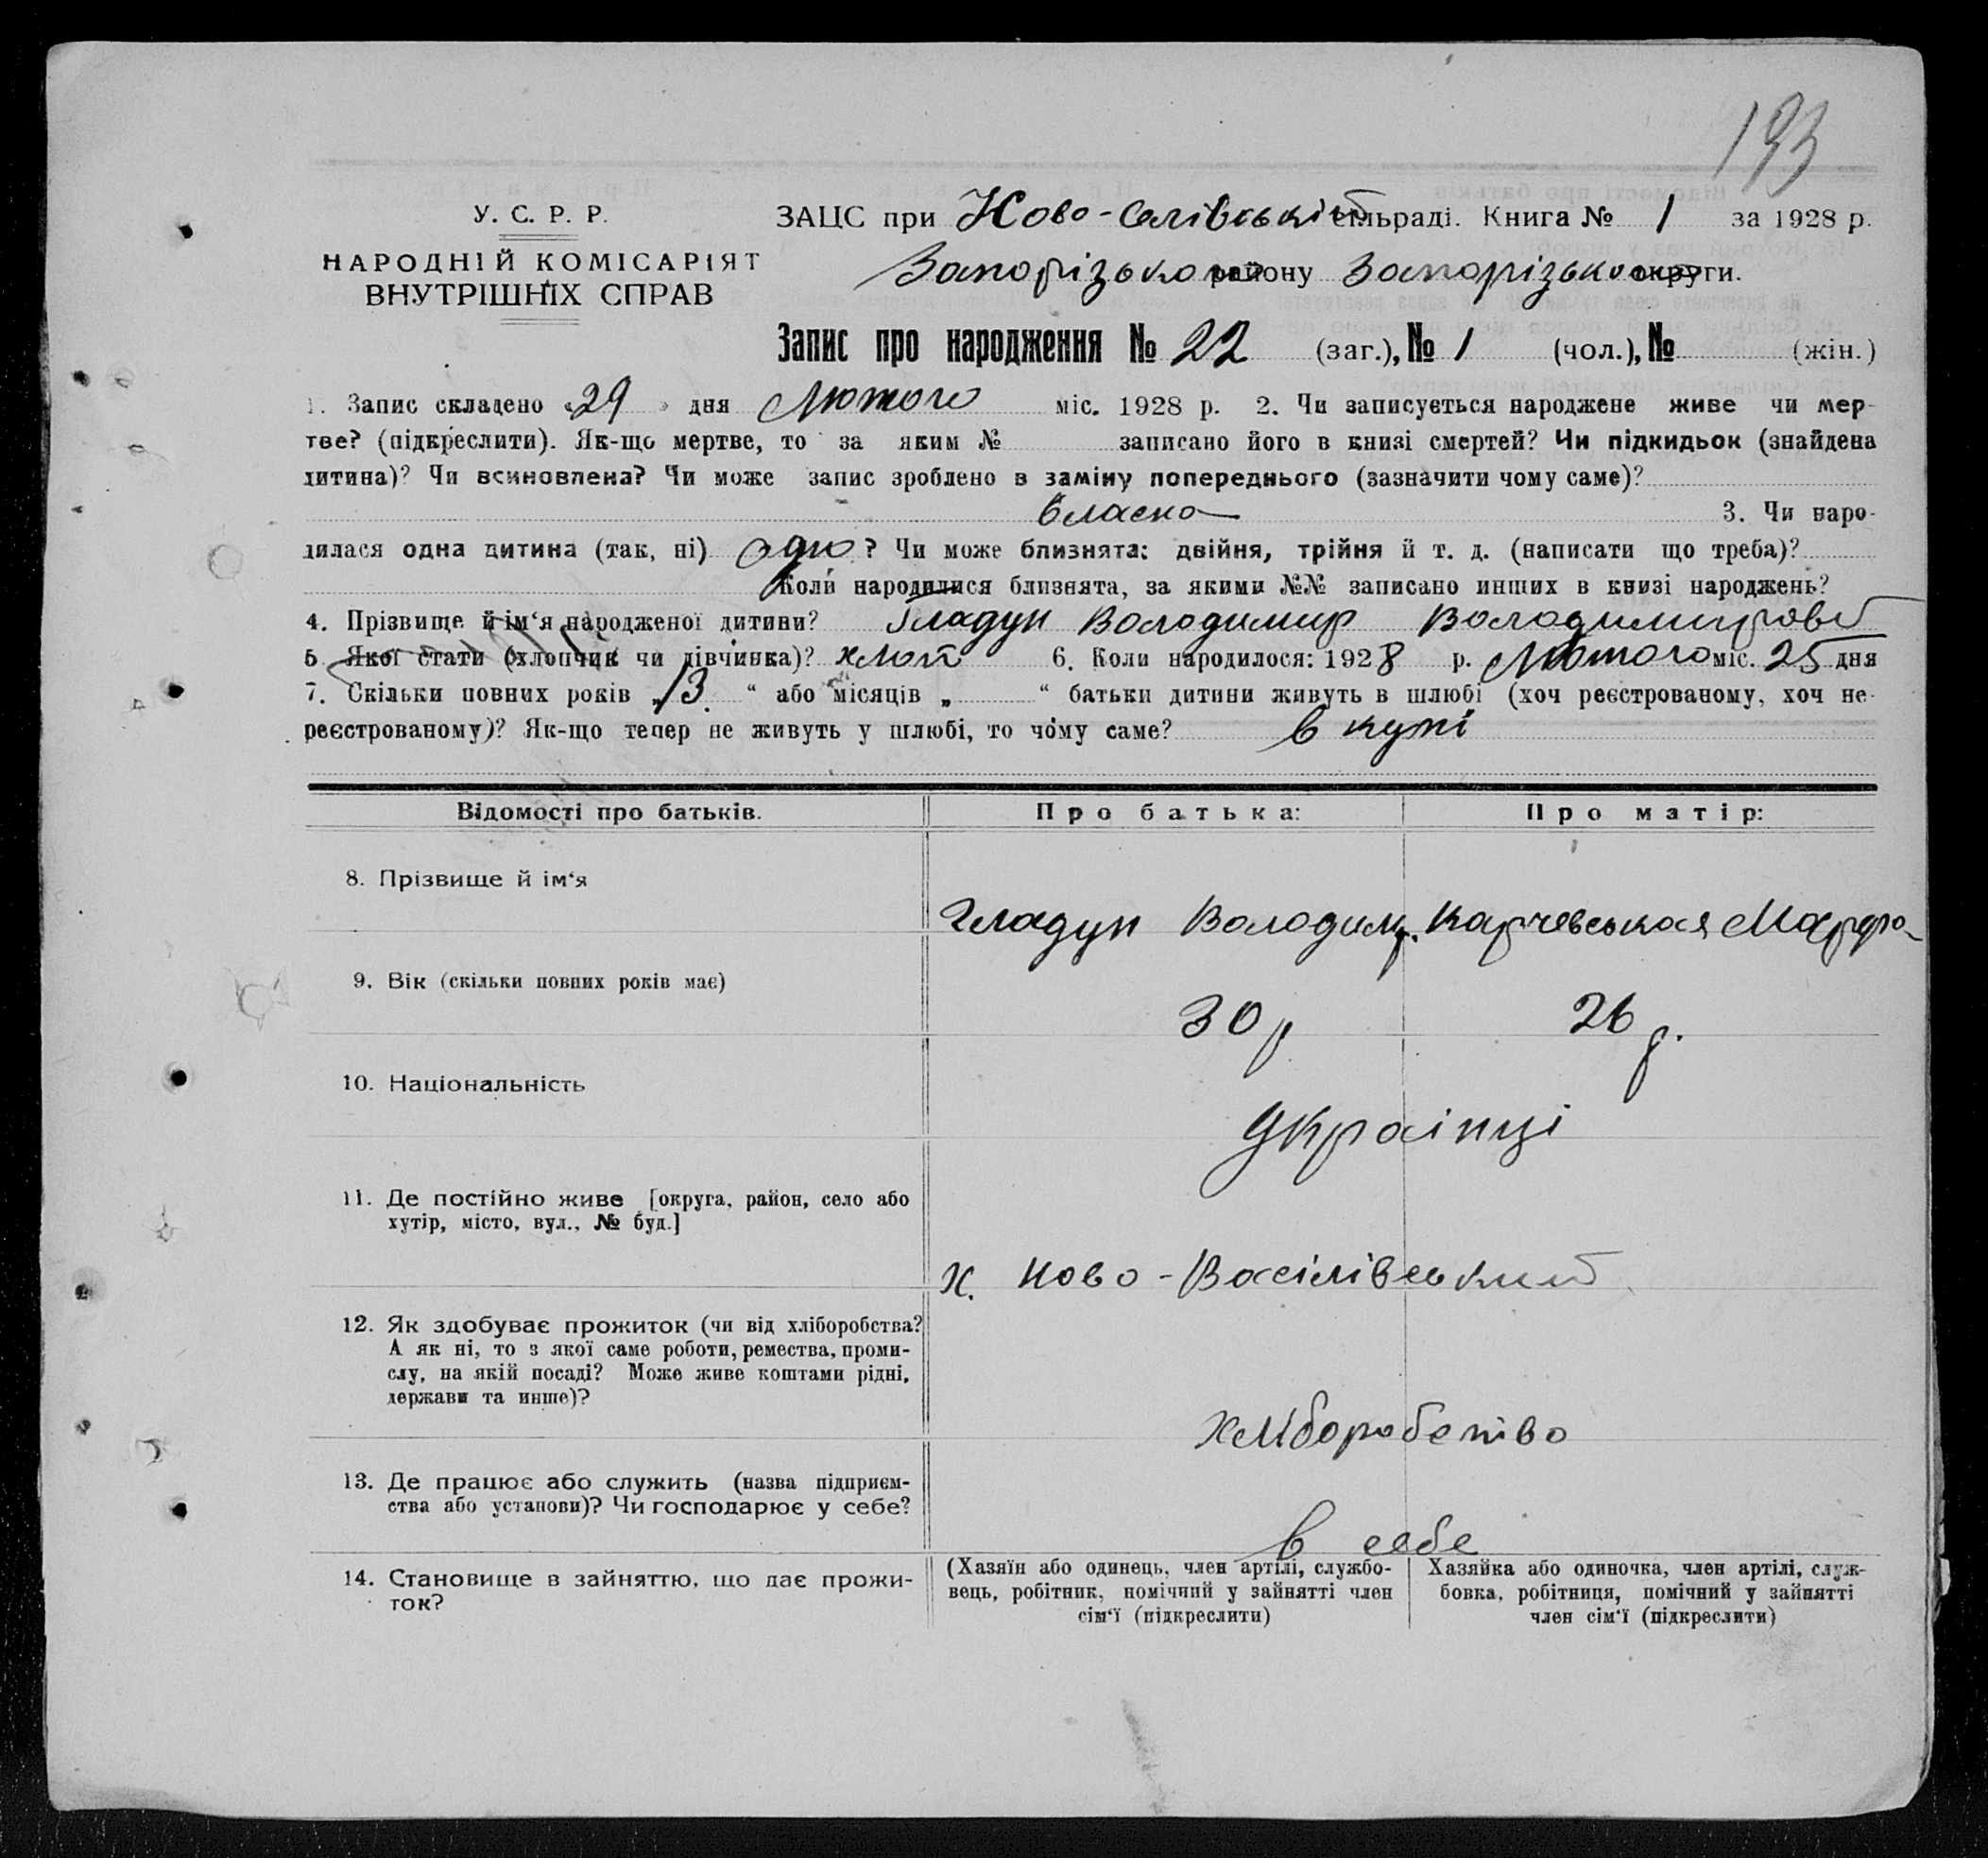 193
У. С. Р. Р.
НАРОДНІЙ КОМІСАРІЯТ
ВНУТРІШНІХ СПРАВ
ЗАЦС при Ново-Селівській сільраді. Книга № 1 за 1928 р.
Запорізького району Запорізької округи.
Запис про народження № 22 (заг.), № 1 (чол.), № (жін.)
1. Запис складено «29» дня Лютого міс. 1928 р. 2. Чи записується народжене живе чи мер-
тве? (підкреслити). Як-що мертве, то за яким № записано його в книзі смертей? Чи підкидьок (знайдена
дитина)? Чи всиновлена? Чи може запис зроблено в заміну попереднього (зазначити чому саме)?
власна 3. Чи наро-
дилася одна дитина (так, ні) одно? Чи може близнята: двійня, трійня й т. д. (написати що треба)?
Коли народилися близнята, за якими №№ записано инших в книзі народжень?
4. Прізвище й ім‘я народженої дитини? Гладун Володимир Володимирови
5 Якої стати (хлопчик чи дівчинка)? хлоп 6. Коли народилося: 1928 р. Лютого міс. 25 дня
7. Скільки повних років „13. “ або місяців „ “ батьки дитини живуть в шлюбі (хоч реєстрованому, хоч не-
реєстрованому)? Як-що тепер не живуть у шлюбі, то чому саме? в купі
Відомості про батьків. Про батька: Про матір:
8. Прізвище й ім‘я
Гладун Володим. Карчевськая Марфа
9. Вік (скільки повних років має)
30 р 26 р.
10. Національність
Українці
11. Де постійно живе [округа, район, село або
хутір, місто, вул., № буд.]
х. Ново-Васілівський
12. Як здобуває прожиток (чи від хліборобства?
А як ні, то з якої саме роботи, ремества, проми-
слу, на якій посаді? Може живе коштами рідні,
держави та инше)?
Хліборобство
13. Де працює або служить (назва підприєм-
ства або установи)? Чи господарює у себе?
в себе
14. Становище в зайняттю, що дає прожи-
ток?
(Хазяїн або одинець, член артілі, службо-
вець, робітник, помічний у зайнятті член
сім‘ї (підкреслити)
Хазяйка або одиночка, член артілі, служ-
бовка, робітниця, помічний у зайнятті
член сім‘ї (підкреслити)